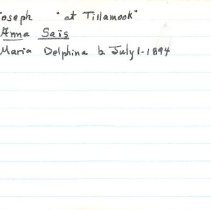 Joseph "at Tillamook"
Anna Sais
Maria Delphina b July 1-1894